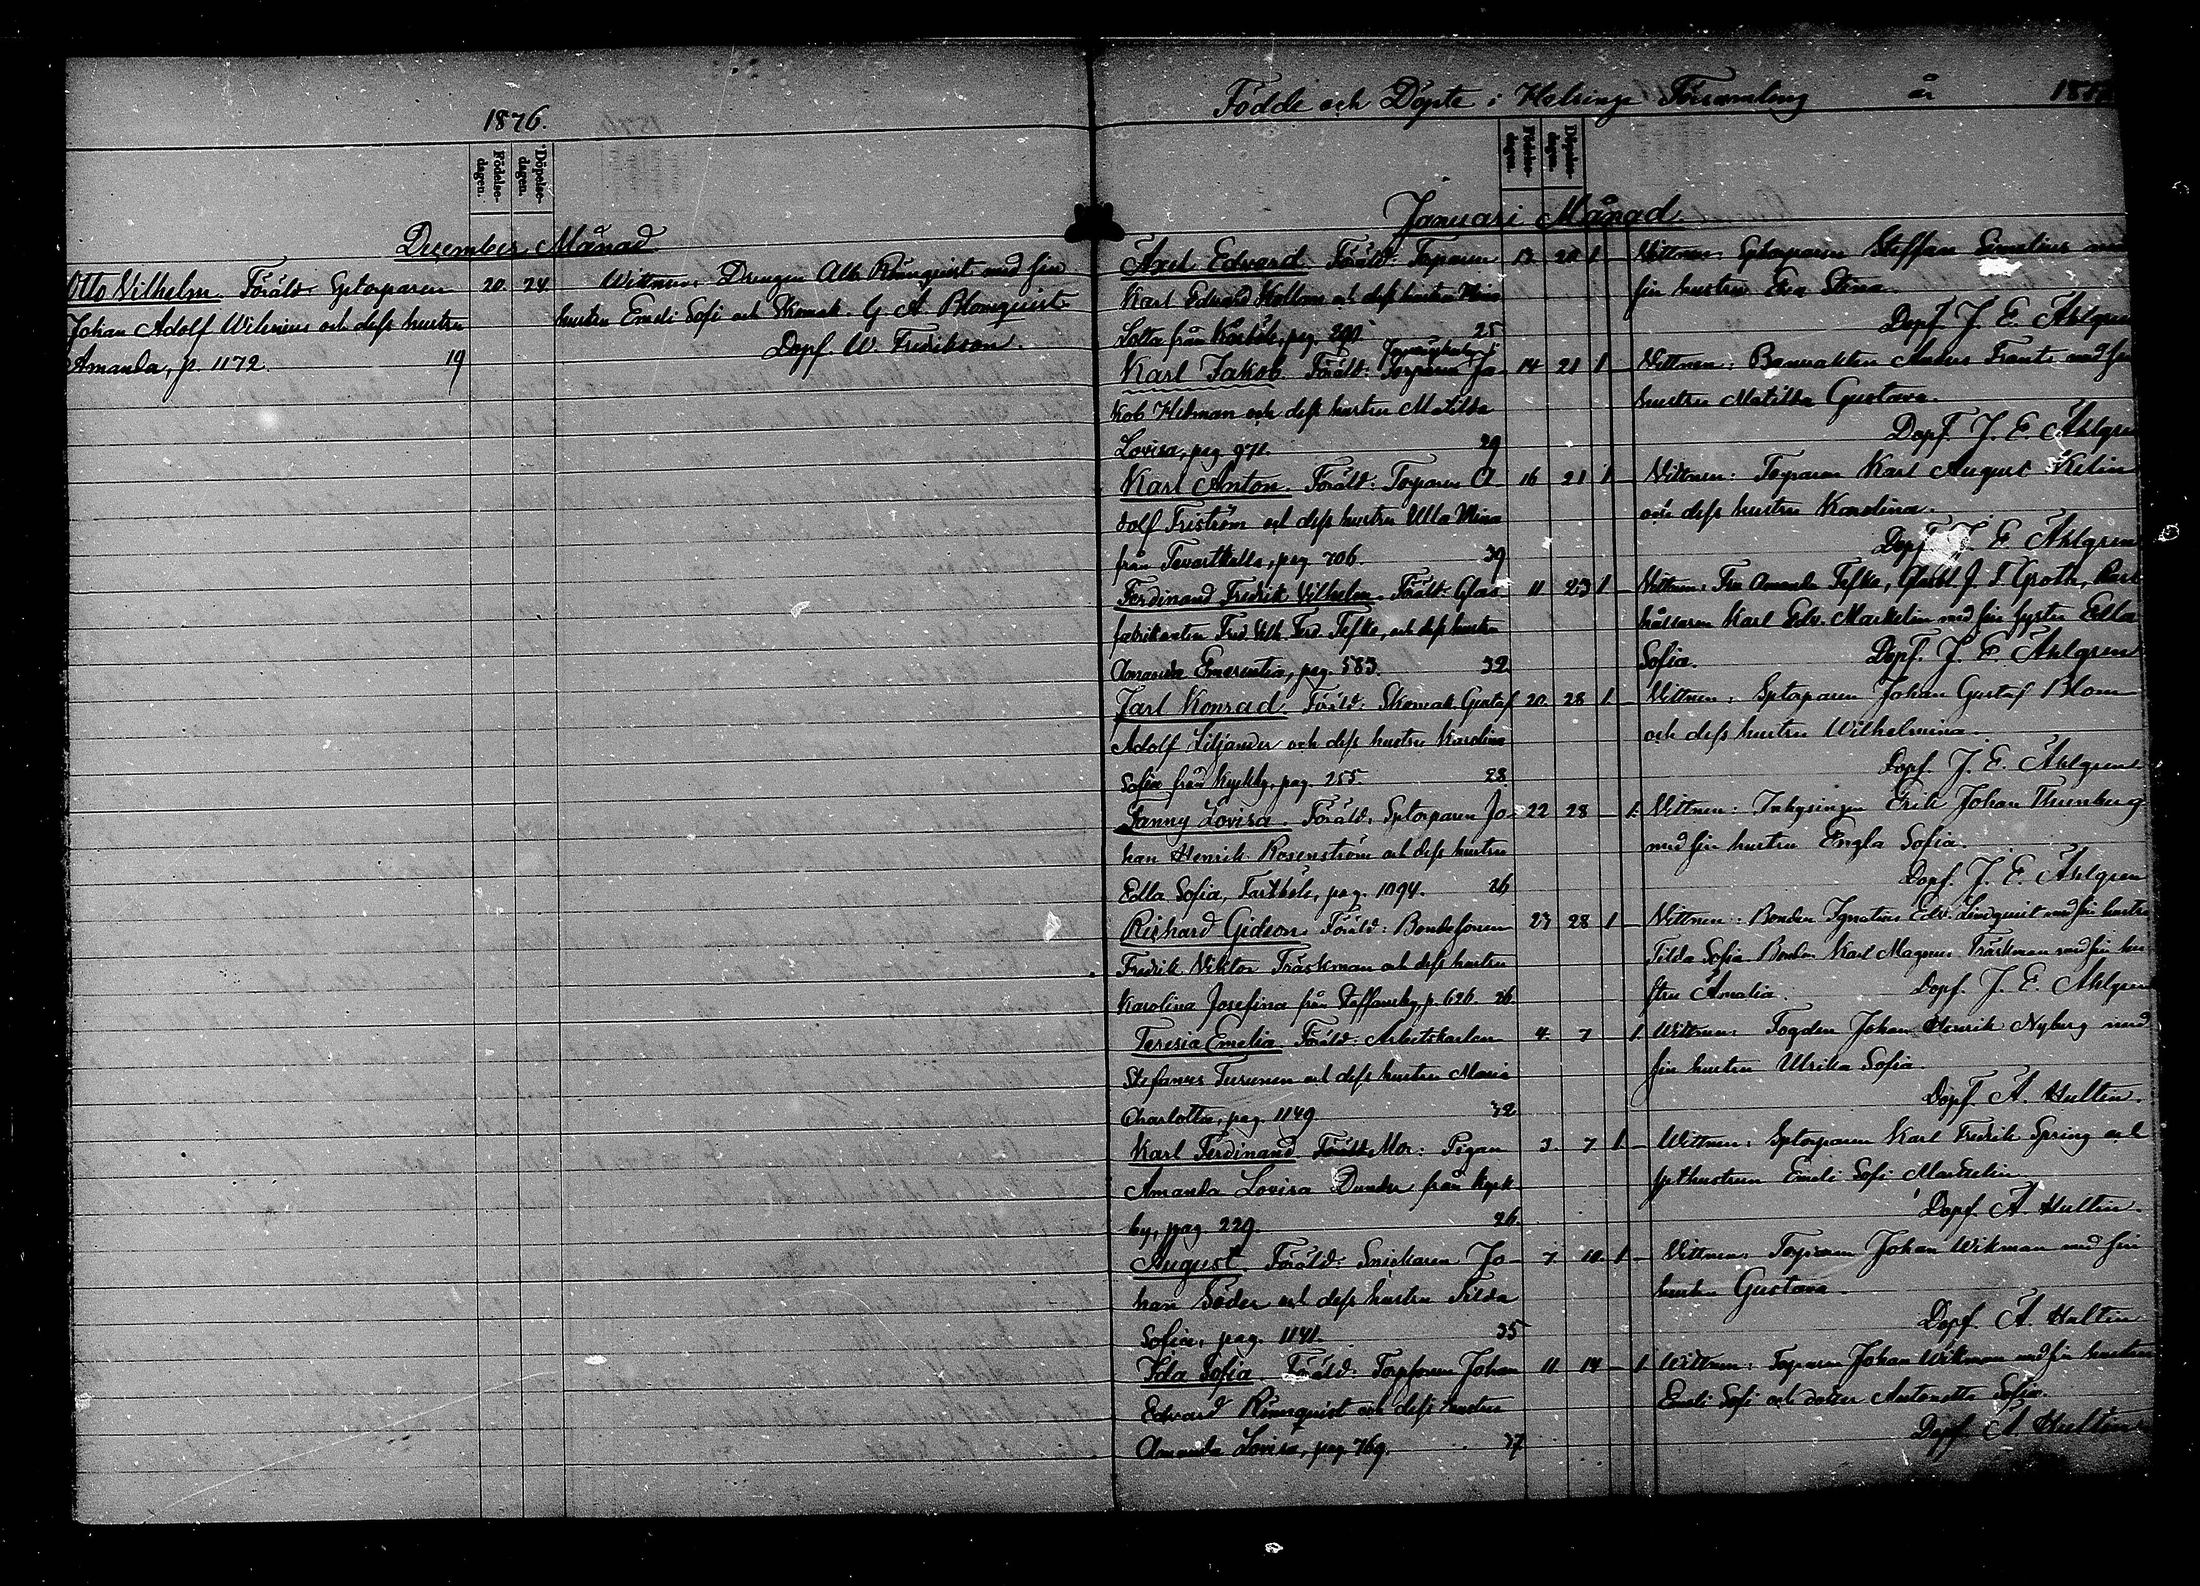 1876.
Födelse-dagen. Döpelse-dagen.
December Månad
Otto Vilhelm. Föräld. Sptorparen 20. 24
Johan Adolf Wilenius och dess hustru
Amanda, p. 1172. 19
Wittnen: Drengen Alb. Rönnquist med sin
hustru Emeli Sofi och Skomak. G. A. Blomquist.
Döpf. W. Fredrikson.
Födde och Döpte i Helsinge Församling år
Födelse-dagen. Döpelse-dagen.
Januari Månad.
Axel Edvard. Föräld: Torparen 13 20 1 –
Karl Edvard och dess hustru Mina
Lotta från pag. 25
Wittnen: Sptorparen Steffan med
sin hustru Eva Stina.
Döpf. J. E. Åhlgren
Karl Jakob. Föräld: Torparen Ja- 14 21 1 –
kob Hekman och dess hustru Matilda
Lovisa, pag 971. 29
Wittnen: Banvakten Frants med sin
hustru Matilda Gustava.
Döpf. J. E. Åhlgren
Karl Anton. Föräld: Torparen A- 16 21 1 –
dolf Friström och dess hustru Ulla Mina
från pag. 706. 39
Wittnen: Torparen Karl August
och dess hustru Karolina.
Döpf. J. E. Åhlgren
Ferdinand Fredrik Vilhelm. Föräld: Glas- 11 23 1 –
fabrikanten Fred. Vilh. Ferd. Tefke, och dess hustru
Amanda Emerentia, pag. 583. 32
Wittnen: Fru Amanda Tefke, Groth,
hållaren Karl Edv. Markelin med sin syster Edla
Sofia. Döpf. J. E. Åhlgren
Jarl Konrad. Föräld: Skomak. Gustaf 20. 28 1. –
Adolf Liljander och dess hustru Karolina
Sofia från pag. 255. 28
Wittnen: Sptorparen Johan Gustaf Blom
och dess hustru Wilhelmina.
Döpf. J. E. Åhlgren
Fanny Lovisa. Föräld: Sptorparen Jo- 22 28 – 1.
han Henrik Rosenström och dess hustru
Edla Sofia, pag. 1094. 26
Wittnen: Inhysingen Erik Johan Thunberg
med sin hustru Engla Sofia.
Döpf. J. E. Åhlgren
Rickard Gideon. Föräld: Bondesonen 23 28 1 –
Fredrik Viktor Träskman och dess hustru
Karolina Josefina från Staffansby, p. 626 26
Wittnen: Bonden Ignatius Edv. Lindquist med sin hustru
Tilda Sofia Bonden Karl Magnus Träskman med sin hu-
stru Amalia. Döpf. J. E. Åhlgren
Teresia Emelia. Föräld: Arbetskarlen 4. 7 – 1.
Stefanus Turunen och dess hustru Maria
Charlotta, pag. 1149 32
Wittnen: Fogden Johan Henrik Nyberg med
sin hustru Ulrika Sofia.
Döpf. A. Hultin.
Karl Ferdinand. Föräld. Mor: Pigan 3. 7 1 –
Amanda Lovisa Dunder från Kyrk-
by, pag. 229. 26.
Wittnen: Sptorparen Karl Fredrik Spring och
Spthustrun Emeli Sofi Markelin
Döpf. A. Hultin.
August. Föräld: Snickaren Jo- 7. 10. 1. –
han Söder och dess hustru Tilda
Sofia, pag. 1141. 35
Wittnen: Torparen Johan Wikman med sin
hustru Gustava.
Döpf. A. Hultin
Ida Sofia. Föräld: Torparen Johan 11 14 – 1.
Edvard Rönnquist och dess hustru
Amanda Lovisa, pag. 769. 37
Wittnen: Torparen Johan Wikman med sin hustru
Emeli Sofi och dotter Antonetta Sofia.
Döpf. A. Hultin